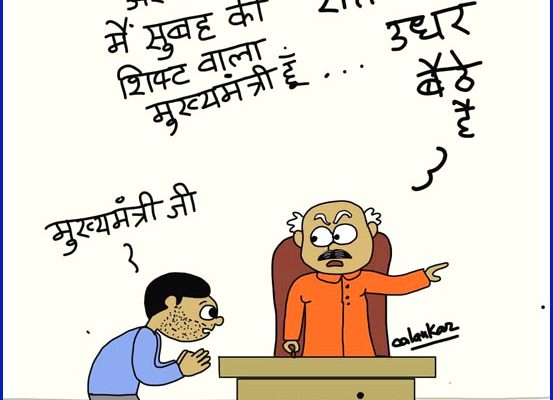 में सुबह की
शिफ्ट वाला
मुख्यमंत्री हूँ ...
उधर
बैठे
है
मुख्यमंत्री जी
calankar